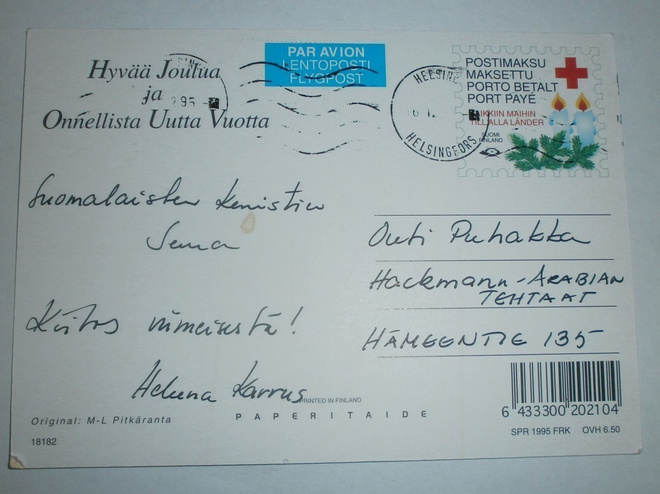 Hyvää Joulua
ja
Onnellista Uutta Vuotta
PAR AVION
LENTOPOSTI
FLYGPOST
HELSINKI
HELSINGFORS
POSTIMAKSU
MAKSETTU
PORTO BETALT
PORT PAYÉ
KAIKKIIN MAIHIN
TILL ALLA LÄNDER
SUOMI
FINLAND
Suomalaisten Kemistien
Seura
Kiitos viimeisestä!
Helena Karrus
Outi Puhakka
Hackmann-ARABIAN
TEHTAAT
HÄMEENTIE 135
PRINTED IN FINLAND
PAPERITAIDE
Original: M-L Pitkäranta
18182
6 433300 202104
SPR 1995 FRK OVH 6.50